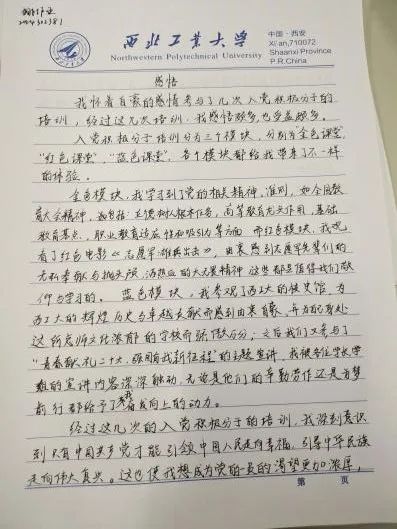 西北工业大学
Northwestern Polytechnical University
中国·西安
Xi'an,710072
Shaanxi Province
P.R.China
感悟
我怀着自豪的感情参与了几次入党积极分子的
培训,经过这几次培训,我感悟颇多也受益颇多。
入党积极分子培训分为三个模块,分别为"金色课堂"
"红色课堂","蓝色课堂",各个模块都给我带来了不一样
的体验。
金色模块,我学习到了党的相关精神,准则,如全国教
育大会精神,包括立德树人根本任务,高等教育龙头作用,基础
教育基点,职业教育适应性和吸引力等方面。而红色模块,我观
看了红色电影《志愿军雄兵出击》,由衷感到志愿军先辈们的
无私奉献与抛头颅洒热血的大无畏精神,这些都是值得我们敬
仰与学习的。蓝色模块,我参观了西工大的校史馆,为
西工大的辉煌历史与卓越贡献而感到由衷自豪,并为自己身处
这所底蕴文化浓郁的学校而骄傲万分;之后我们又参与了
"青春献礼二十大,强国有我新征程"的主题宣讲,我被各位学长学
姐的宣讲内容深深触动,无论是他们的辛勤劳作还是筑梦
前行都给予了我奋发向上的动力。
经过这几次的入党积极分子的培训,我深刻意识
到只有中国共产党才能引领中国人民走向幸福,引导中华民族
走向伟大复兴。这也使我想成为党的一员的渴望更加浓厚,
第 页